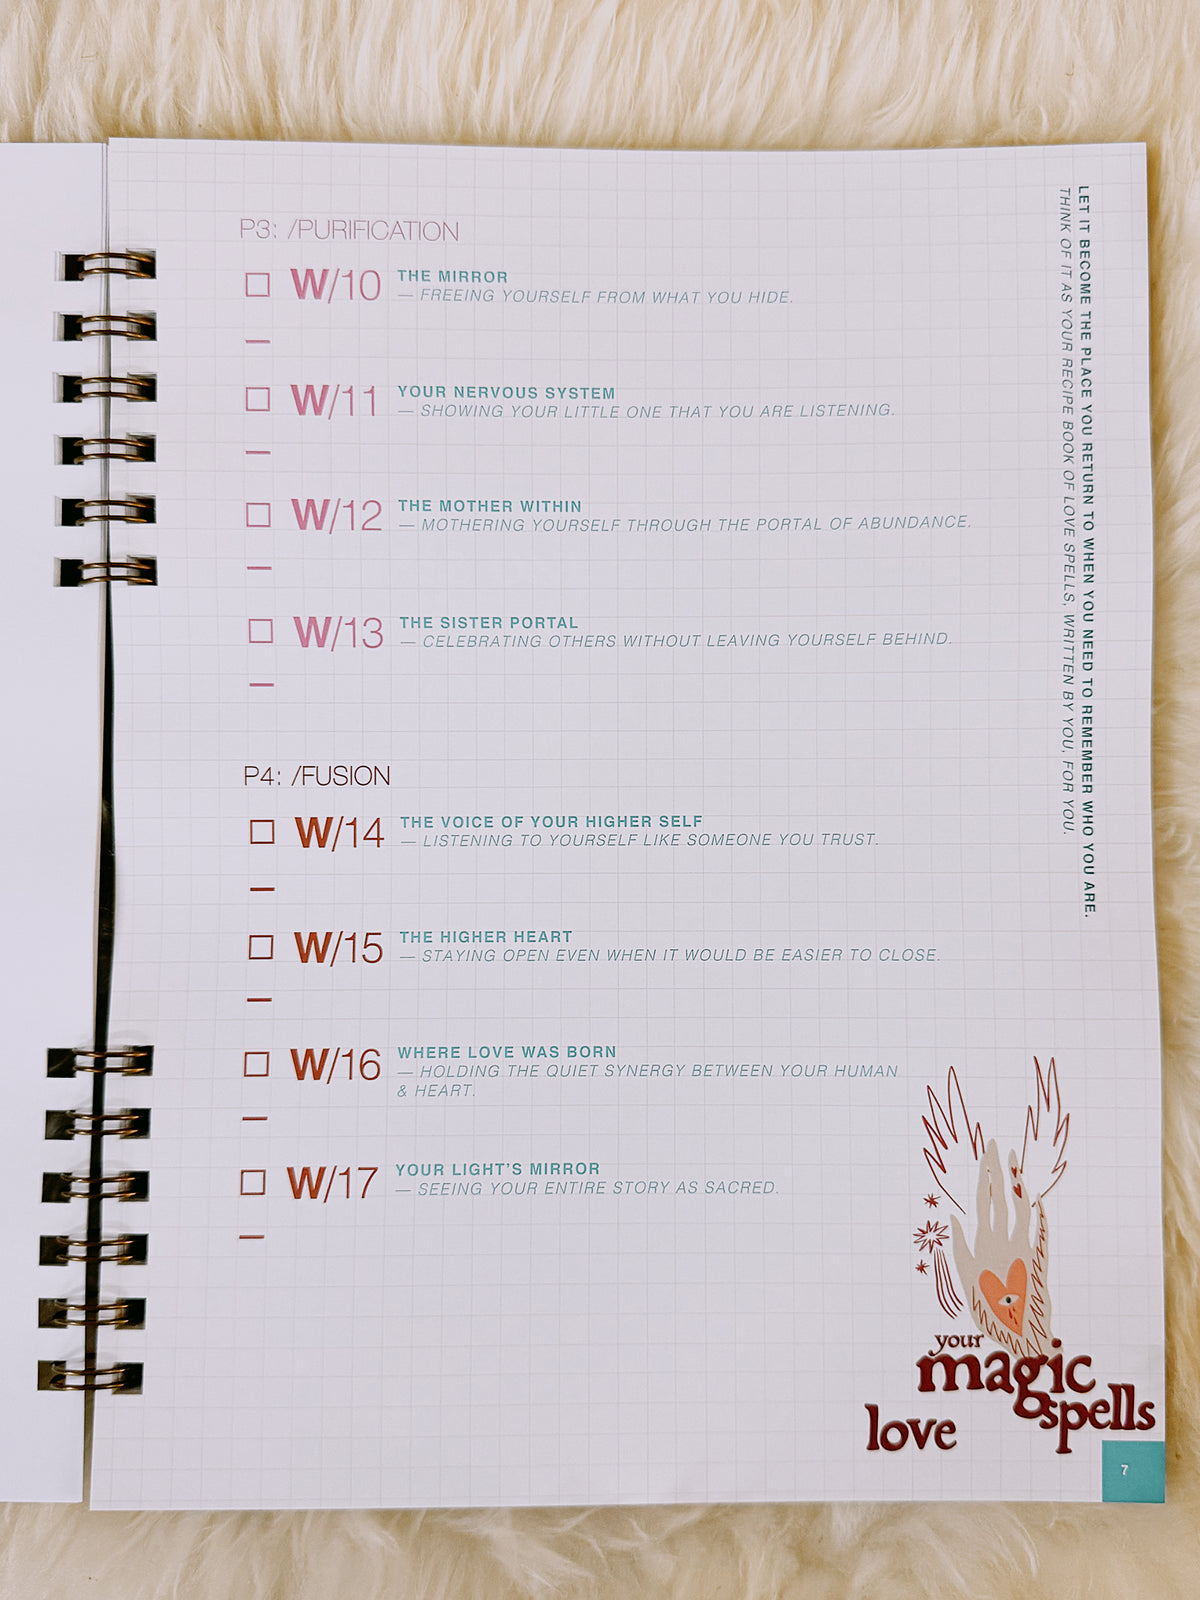 P3: /PURIFICATION
W/10
THE MIRROR
— FREEING YOURSELF FROM WHAT YOU HIDE.
W/11
YOUR NERVOUS SYSTEM
— SHOWING YOUR LITTLE ONE THAT YOU ARE LISTENING.
W/12
THE MOTHER WITHIN
— MOTHERING YOURSELF THROUGH THE PORTAL OF ABUNDANCE.
W/13
THE SISTER PORTAL
— CELEBRATING OTHERS WITHOUT LEAVING YOURSELF BEHIND.
P4: /FUSION
W/14
THE VOICE OF YOUR HIGHER SELF
— LISTENING TO YOURSELF LIKE SOMEONE YOU TRUST.
W/15
THE HIGHER HEART
— STAYING OPEN EVEN WHEN IT WOULD BE EASIER TO CLOSE.
W/16
WHERE LOVE WAS BORN
— HOLDING THE QUIET SYNERGY BETWEEN YOUR HUMAN
& HEART.
W/17
YOUR LIGHT'S MIRROR
— SEEING YOUR ENTIRE STORY AS SACRED.
LET IT BECOME THE PLACE YOU RETURN TO WHEN YOU NEED TO REMEMBER WHO YOU ARE.
THINK OF IT AS YOUR RECIPE BOOK OF LOVE SPELLS, WRITTEN BY YOU, FOR YOU.
your
magic
love spells
7